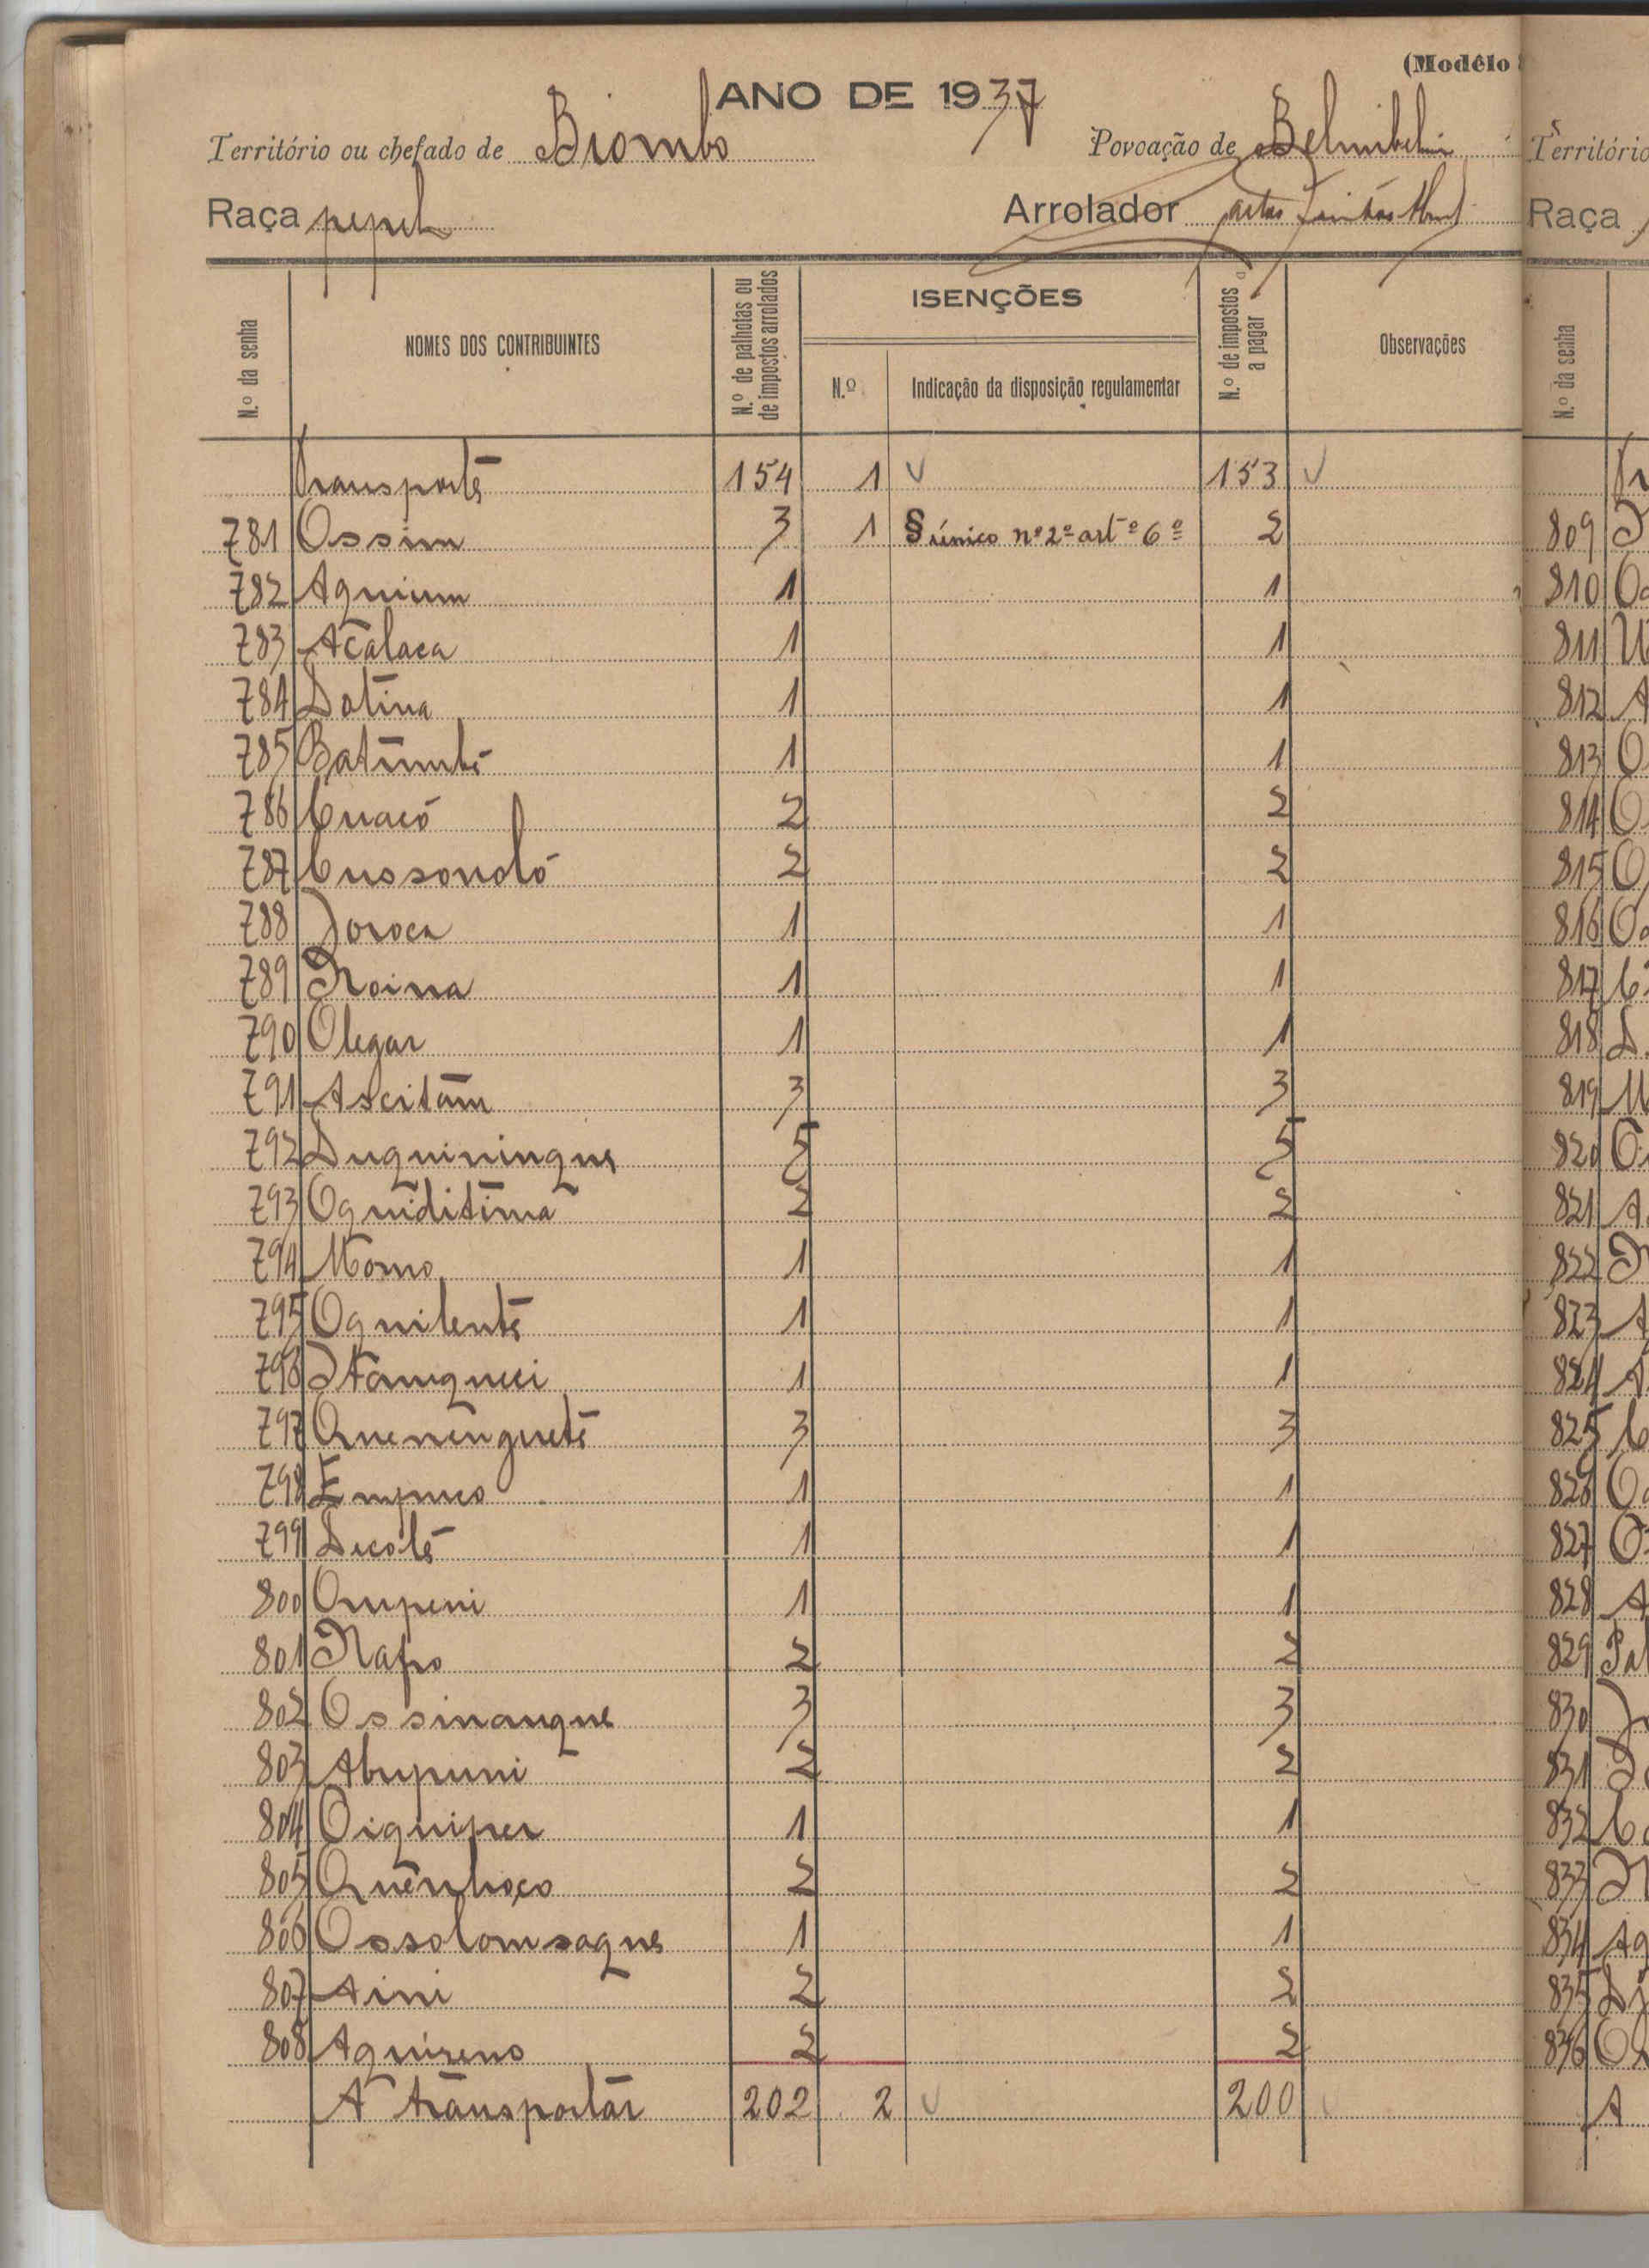 (Modêlo
ANO DE 1937
Território ou chefado de Biombo Povoação de
Raça pepel Arrolador
N.º da senha
NOMES DOS CONTRIBUINTES
N.º de palhotas ou de impostos arrolados
ISENÇÕES
N.º
Indicação da disposição regulamentar
N.º de impostos a pagar
Observações
Transporte 154 1 153
781 Ossim 3 1 § único nº 2º artº 6º 2
782 Aquium 1 1
783 Acalaca 1 1
784 Dotina 1 1
785 Batumbé 1 1
786 Cuacó 2 2
787 Cussondó 2 2
788 Joroca 1 1
789 Noina 1 1
790 Olegar 1 1
791 Ascitam 3 3
792 Duquiningue 5 5
793 Oquiditima 2 2
794 Momo 1 1
795 Oquilenté 1 1
796 1 1
797 Quenengueté 3 3
798 1 1
799 Dicoté 1 1
800 Ompeni 1 1
801 Napo 2 2
802 Ossinanque 3 3
803 Abupuni 2 2
804 Oiquiper 1 1
805 2 2
806 Ossolomsaque 1 1
807 Aini 2 2
808 Aquireno 2 2
A transportar 202 2 200
Território
Raça
N.º da senha
809
810
811
812
813
814
815
816
817
818
819
820
821
822
823
824
825
826
827
828
829
830
831
832
833
834
835
836
A